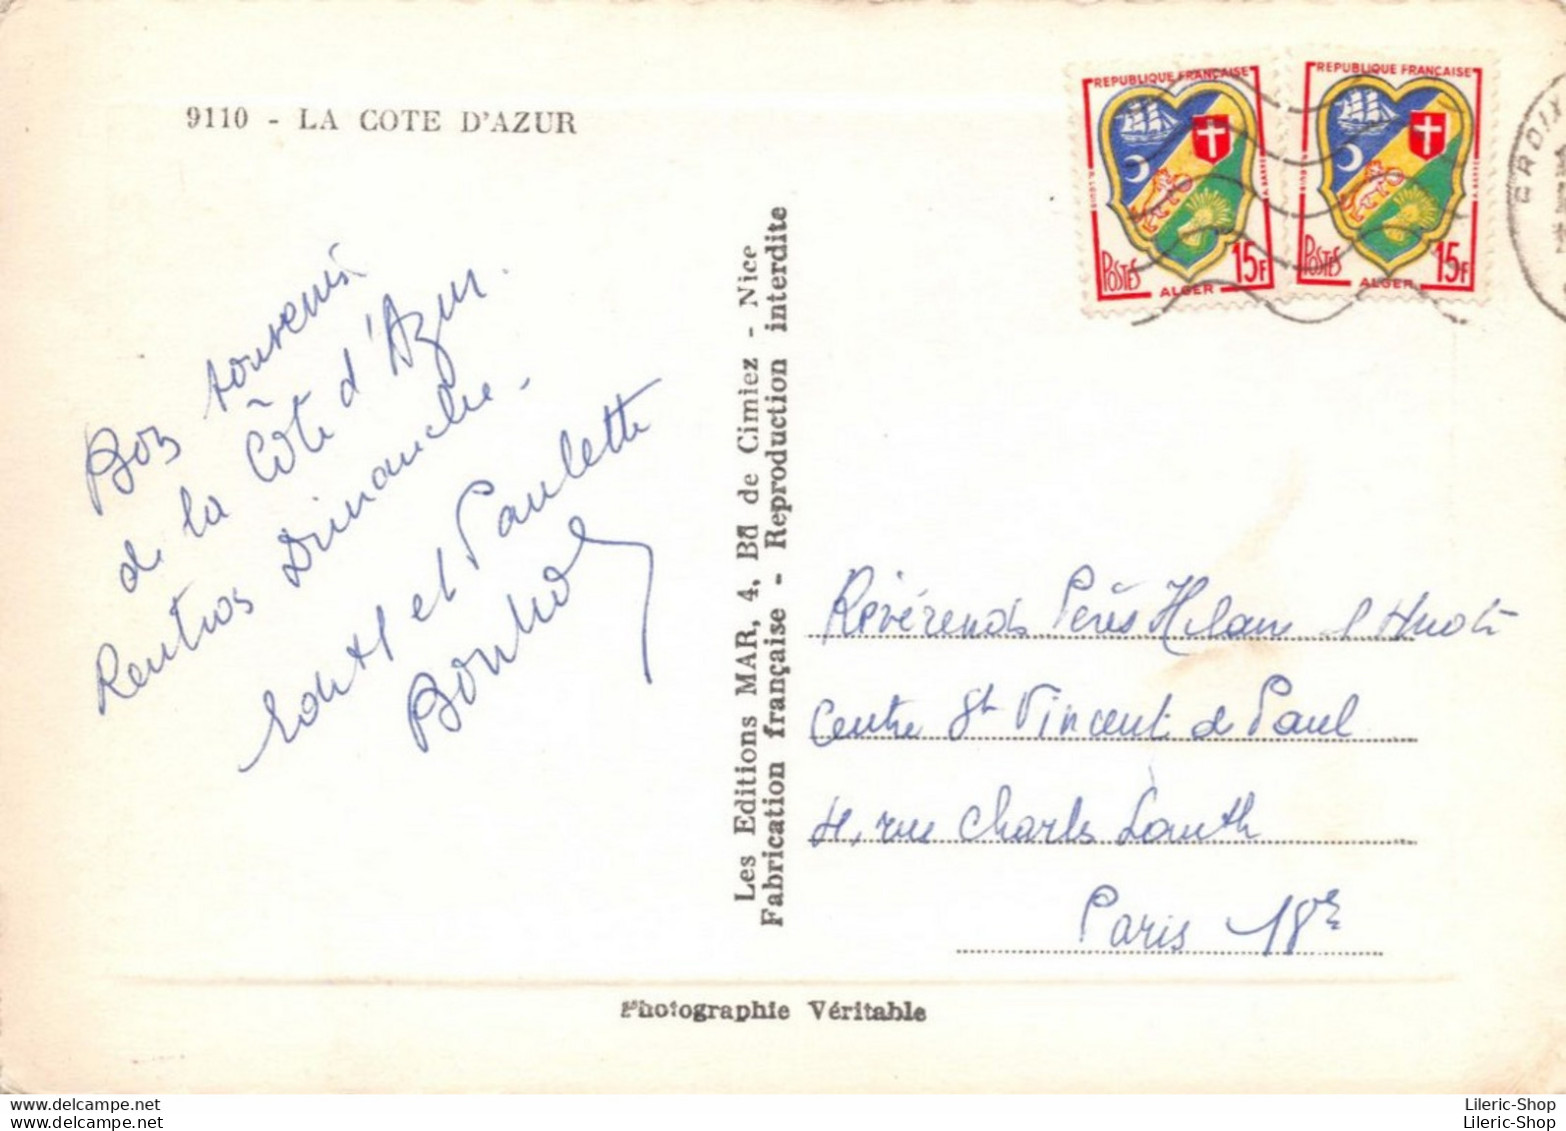 9110 - LA COTE D'AZUR
REPUBLIQUE FRANÇAISE
POSTES
15F
ALGER
REPUBLIQUE FRANÇAISE
POSTES
15F
ALGER
CROIX
Bon souvenir
de la Côte d'Azur.
Rentrons Dimanche.
et Paulette
Les Editions MAR, 4, Bd de Cimiez - Nice
Fabrication française - Reproduction interdite
Révérends Pères
Centre St Vincent de Paul
rue Charles Lauth
Paris 18e
Photographie Véritable
www.delcampe.net
www.delcampe.net
Lileric-Shop
Lileric-Shop